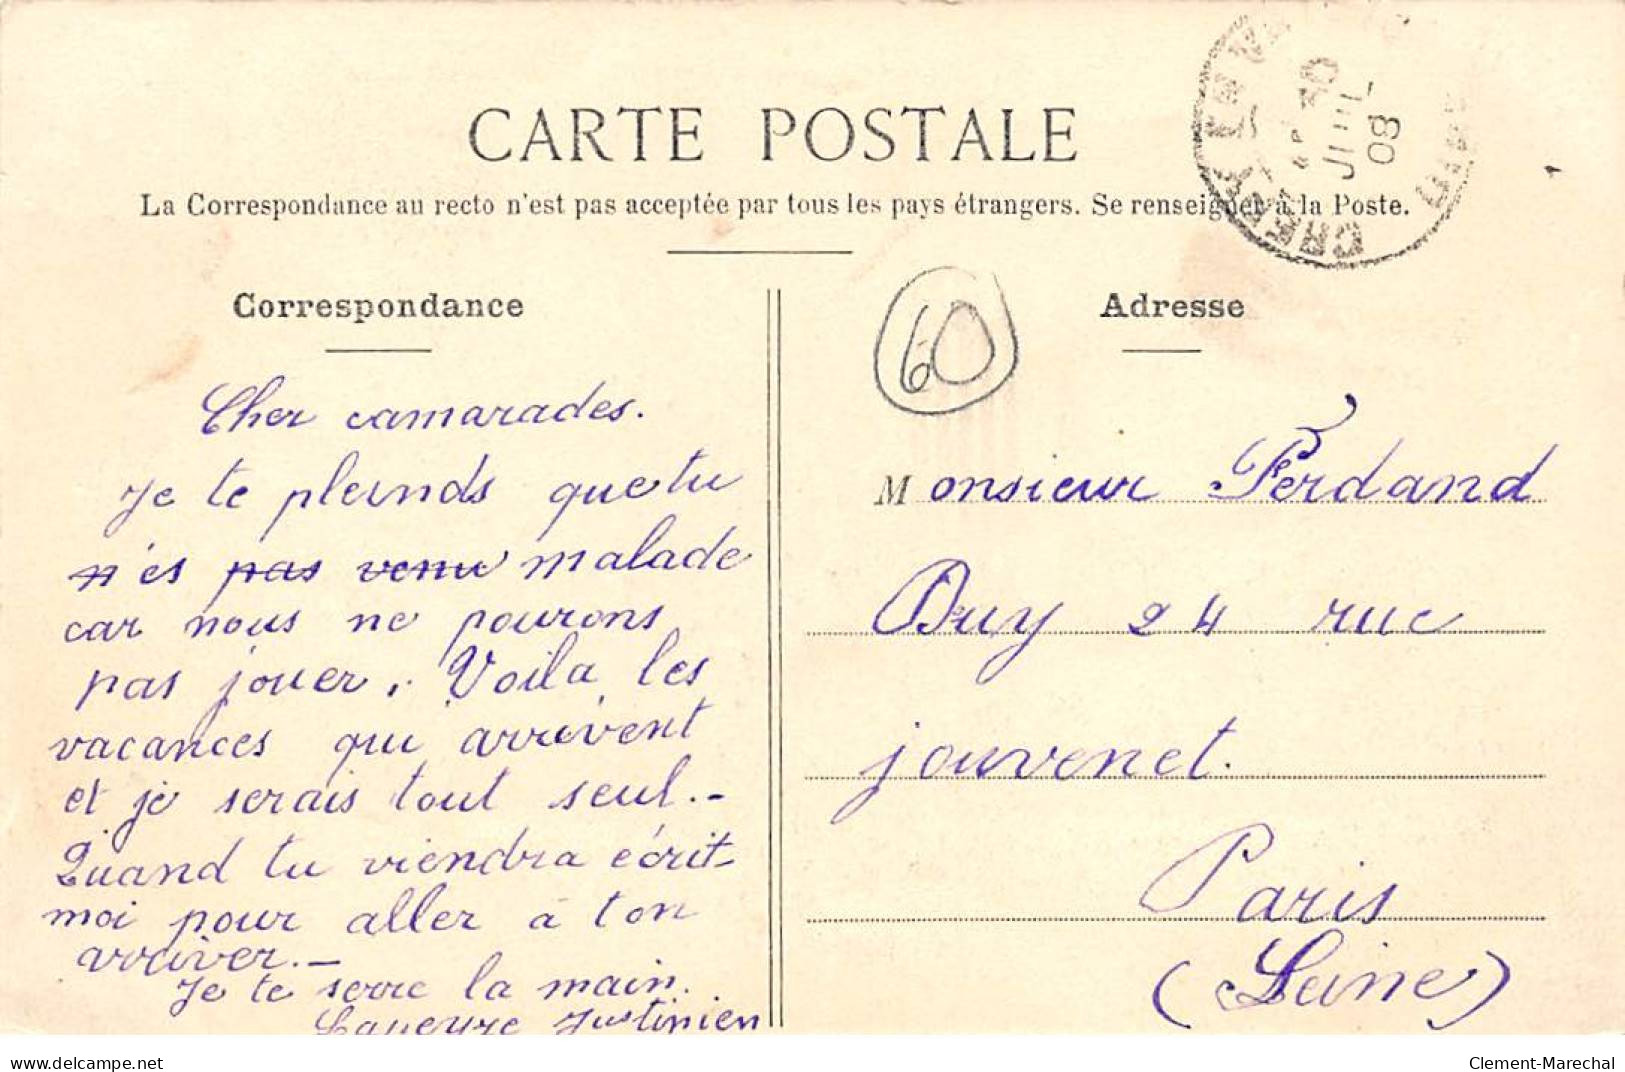 CARTE POSTALE
La Correspondance au recto n'est pas acceptée par tous les pays étrangers. Se renseigner à la Poste.
30
JUIL
08
OISE
Correspondance
60
Adresse
Cher camarades.
Je te pleinds que tu
n'es pas venu malade
car nous ne pourons
pas jouer. Voila les
vacances qui arrivent
et je serais tout seul.-
Quand tu viendra écrit-
moi pour aller à ton
arriver.-
Je te serre la main.
Justinien
Monsieur Ferdand
Duy 24 rue
jouvenet.
Paris
(Seine)
delcampe.net
Clement-Marechal